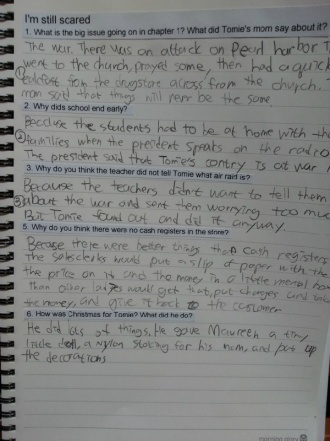 I'm still scared
1. What is the big issue going on in chapter 1? What did Tomie's mom say about it?
The war. There was an attack on Pearl harbor T
went to the church, prayed some, then had a quick
breakfast from the drugstore across from the church.
mom said that things will never be the same.
2. Why dids school end early?
Because the students had to be at home with the
families when the president speaks on the radio
The president said that Tomie's contry is at war
3. Why do you think the teacher did not tell Tomie what air raid is?
Because the teachers didn't want to tell them
about the war and sent them worrying too muc
But Tomie found out and did it anyway.
5. Why do you think there were no cash registers in the store?
Becase there were better things than cash registers
the salesclerks would put a slip of paper with the
the price on it and the money in a little metal
Than other would get that, put changer and
the money, and give it back to the customer
6. How was Christmas for Tomie? What did he do?
He did lots of things. He gave Maureen a tiny
little doll, a nylon stoking for his mom, and put up
the decorations